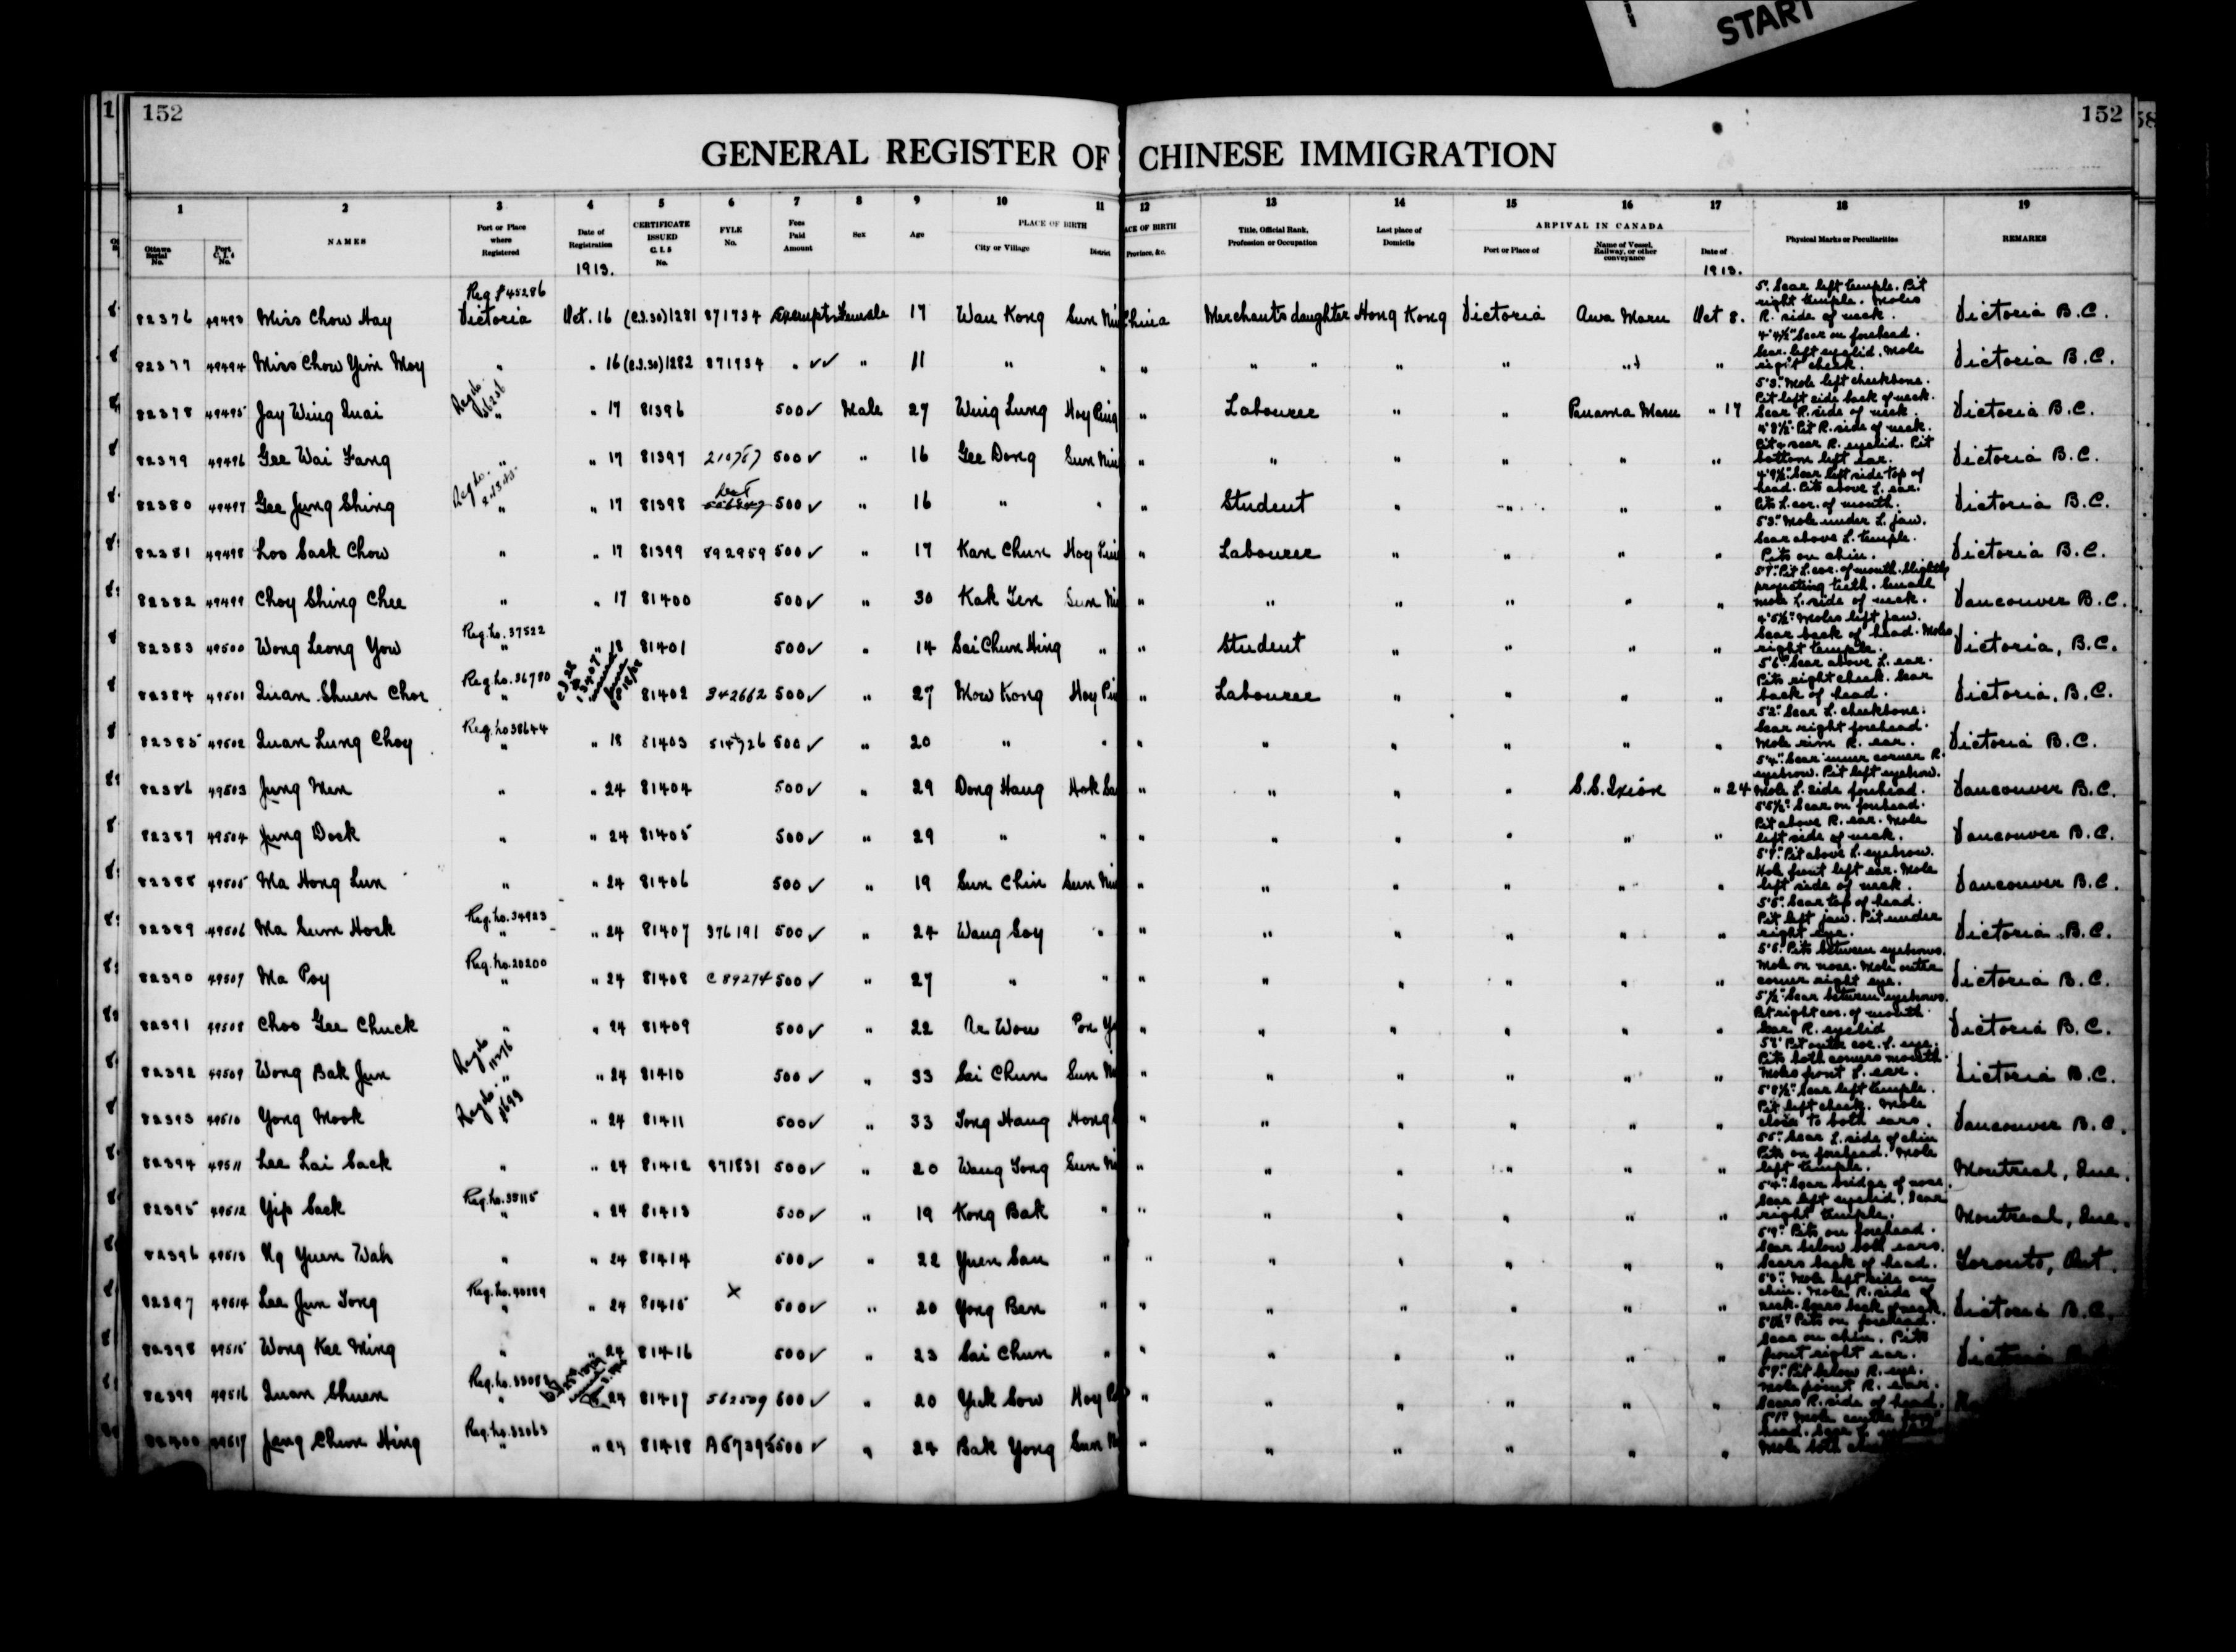 START
152 152
GENERAL REGISTER OF CHINESE IMMIGRATION
1 2 3 4 5 6 7 8 9 10 11 12 13 14 15 16 17 18 19
Ottawa Serial No. Port C.I.5 No. NAMES Port or Place where Registered Date of Registration CERTIFICATE ISSUED C.I.5 No. FYLE No. Fees Paid Amount Sex Age PLACE OF BIRTH City or Village District Province, &c. Title, Official Rank, Profession or Occupation Last place of Domicile ARRIVAL IN CANADA Port or Place of Name of Vessel, Railway, or other conveyance Date of Physical Marks or Peculiarities REMARKS
1913. 1913.
82376 49493 Miss Chow Hay Reg # 45286 Victoria Oct. 16 (C.I.30) 1281 871734 Exempt Female 17 Wan Kong Sun Ni China Merchants daughter Hong Kong Victoria Awa Maru Oct 8. 5'. Scar left temple. Pit right temple. Moles R. side of neck. Victoria B.C.
82377 49494 Miss Chow Yim Moy " " 16 (C.I.30) 1282 871734 " ✓✓ " 11 " " " " " " " " " 4'4½" Scar on forehead. Scar left eyelid. Mole right cheek. Victoria B.C.
82378 49495 Jay Wing Quai " " 17 81396 500 ✓ Male 27 Wing Lung Hoy Ping " Labourer " " Panama Maru " 17 5'3" Mole left cheekbone. Pit left side back of neck. Scar R. side of neck. Victoria B.C.
82379 49496 Gee Wai Fang " " 17 81397 500 ✓ " 16 Gee Dong Sun Nin " " " " " " 4'8½" Pit R. side of neck. Pit & scar R. eyelid. Pit bottom left ear. Victoria B.C.
82380 49497 Gee Jung Shing " " 17 81398 500 ✓ " 16 " " " Student " " " " 4'9½" Scar left side top of head. Pits above L. ear. Pits L. cor. of mouth. Victoria B.C.
82381 49498 Loo Sack Chow " " 17 81399 892959 500 ✓ " 17 Kan Chun Hoy " Labourer " " " " 5'3" Mole under L. jaw. Scar above L. temple. Pits on chin. Victoria B.C.
82382 49499 Choy Shing Chee " " 17 81400 500 ✓ " 30 Kak Sun Ni " " " " " " 5'7" Pit L. cor. of mouth. Slightly projecting teeth. Small mole L. side of neck. Vancouver B.C.
82383 49500 Wong Leong Yow Reg. No. 37522 " " 18 81401 500 ✓ " 14 Sai Chun Hing " " Student " " " " 4'5½" Moles left jaw. Scar back of head. Moles right temple. Victoria, B.C.
82384 49501 Quan Shuen Choe Reg No. 36780 " 81402 342662 500 ✓ " 27 Mow Kong Hoy Pin " Labourer " " " " 5'6" Scar above L. ear. Pits right cheek. Scar back of head. Victoria, B.C.
82385 49502 Quan Lung Choy Reg. No 38644 " " 18 81403 500 ✓ " 20 " " " " " " " " 5'2" Scar L. cheekbone. Scar right forehead. Mole rim R. ear. Victoria B.C.
82386 49503 Jung Men " " 24 81404 500 ✓ " 29 Dong Hang Hok Sa " " " " S.S. Ixion " 24 5'4" Scar inner corner R. eyebrow. Pit left eyebrow. Mole L. side forehead. Vancouver B.C.
82387 49504 Jung Dock " " 24 81405 500 ✓ " 29 " " " " " " " " 5'5½" Scar on forehead. Pit above R. ear. Mole left side of neck. Vancouver B.C.
82388 49505 Ma Hong Lun " " 24 81406 500 ✓ " 19 Sun Chin Sun Ni " " " " " " 5'7" Pit above L. eyebrow. Hole front left ear. Mole left side of neck. Vancouver B.C.
82389 49506 Ma Sum Hock Reg. No. 34923 " " 24 81407 376191 500 ✓ " 24 Wang Soy " " " " " " " 5'5" Scar top of head. Pit left jaw. Pit under right eye. Victoria B.C.
82390 49507 Ma Poy Reg. No. 20200 " " 24 81408 C 89274 500 ✓ " 27 " " " " " " " " 5'5" Pits between eyebrows. Mole on nose. Mole outer corner right eye. Victoria B.C.
82391 49508 Choo Gee Chuck " " 24 81409 500 ✓ " 22 Wou " " " " " " 5'½" Scar between eyebrows. Pit right cor. of mouth. Scar R. eyelid Victoria B.C.
82392 49509 Wong Bak Jun " " 24 81410 500 ✓ " 33 Sai Chun Sun Ni " " " " " " Pit outer cor. L. eye. Pits both corners mouth. Moles front L. ear. Victoria B.C.
82393 49510 Yong Mook " " 24 81411 500 ✓ " 33 Tong Hang Hong " " " " " " 5'8½" Scar left temple. Pit left cheek. Mole close to both ears. Vancouver B.C.
82394 49511 Lee Lai Sack " " 24 81412 871831 500 ✓ " 20 Wang Tong Sun Ni " " " " " " 5'5" Scar L. side of chin Pits on forehead. Mole left temple. Montreal, Que.
82395 49512 Yip Sack Reg. No. 38115 " " 24 81413 500 ✓ " 19 Kong Bak " " " " " " " 5'4" Scar bridge of nose. Scar left eyelid. Scar right temple. Montreal, Que.
82396 49513 Ng Yuen Wah " " 24 81414 500 ✓ " 22 Yuen San " " " " " " " 5'9" Pits on forehead. Scar below both ears. Scars back of head. Toronto, Ont.
82397 49514 Lee Jun Tong Reg. No. 40289 " " 24 81415 × 500 ✓ " 20 Yong Ben " " " " " " " 5'3" Mole left side on chin. Mole R. side of neck. Scars back of neck. Victoria B.C.
82398 49515 Wong Kee Ming " " 24 81416 500 ✓ " 23 Sai Chun " " " " " " " Pits on forehead. Scar on chin. Pits front right ear. Victoria
82399 49516 Quan Shuen Reg. No. " 24 81417 562509 500 ✓ " 20 Yuk Sow Hoy " " " " " " 5'7" Pit below R. eye. Mole point R. ear. Scars R. side of head.
82400 49517 Jang Chun Hing Reg. No. 32063 " " 24 81418 500 ✓ " 24 Bak Yong Sun " " " " " " 5'1" Mole head. Scar L. Mole both